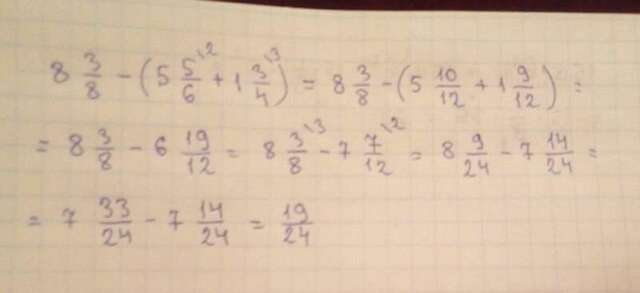 8 3/8 − (5 5/6 \2 + 1 3/4 \3) = 8 3/8 − (5 10/12 + 1 9/12) =
= 8 3/8 − 6 19/12 = 8 3/8 \3 − 7 7/12 \2 = 8 9/24 − 7 14/24 =
= 7 33/24 − 7 14/24 = 19/24